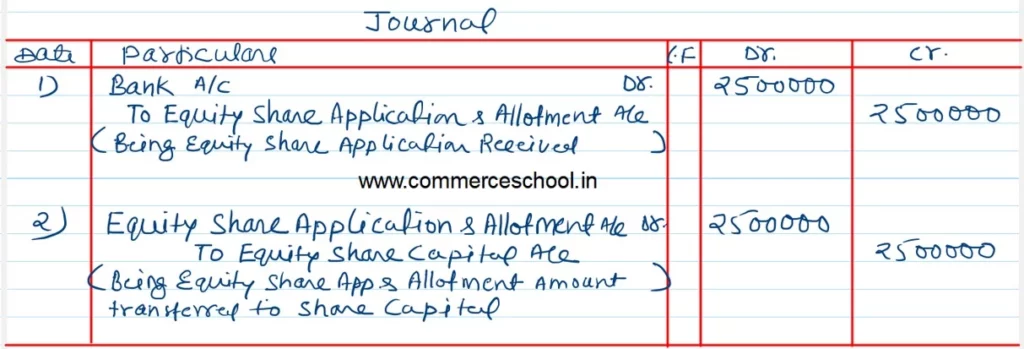 Journal
Date Particulars L.F Dr. Cr.
1) Bank A/c Dr. 2500000
To Equity Share Application & Allotment A/c 2500000
(Being Equity Share Application Received)
www.commerceschool.in
2) Equity Share Application & Allotment A/c Dr. 2500000
To Equity Share Capital A/c 2500000
(Being Equity Share App & Allotment Amount)
transferred to Share Capital